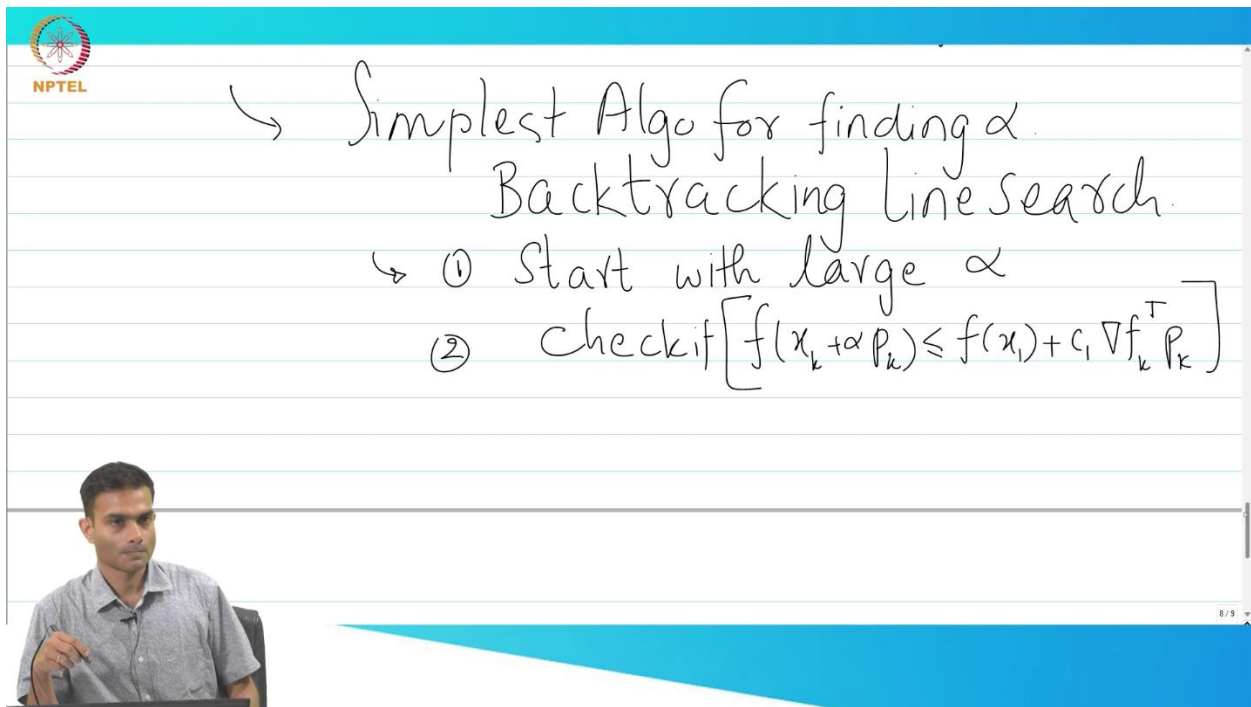 NPTEL
↳ Simplest Algo for finding α.
Backtracking Line Search.
↳ ① Start with large α
② Check if [f(x_k + α p_k) ≤ f(x_1) + c_1 ∇f_k^T p_k]
8 / 9